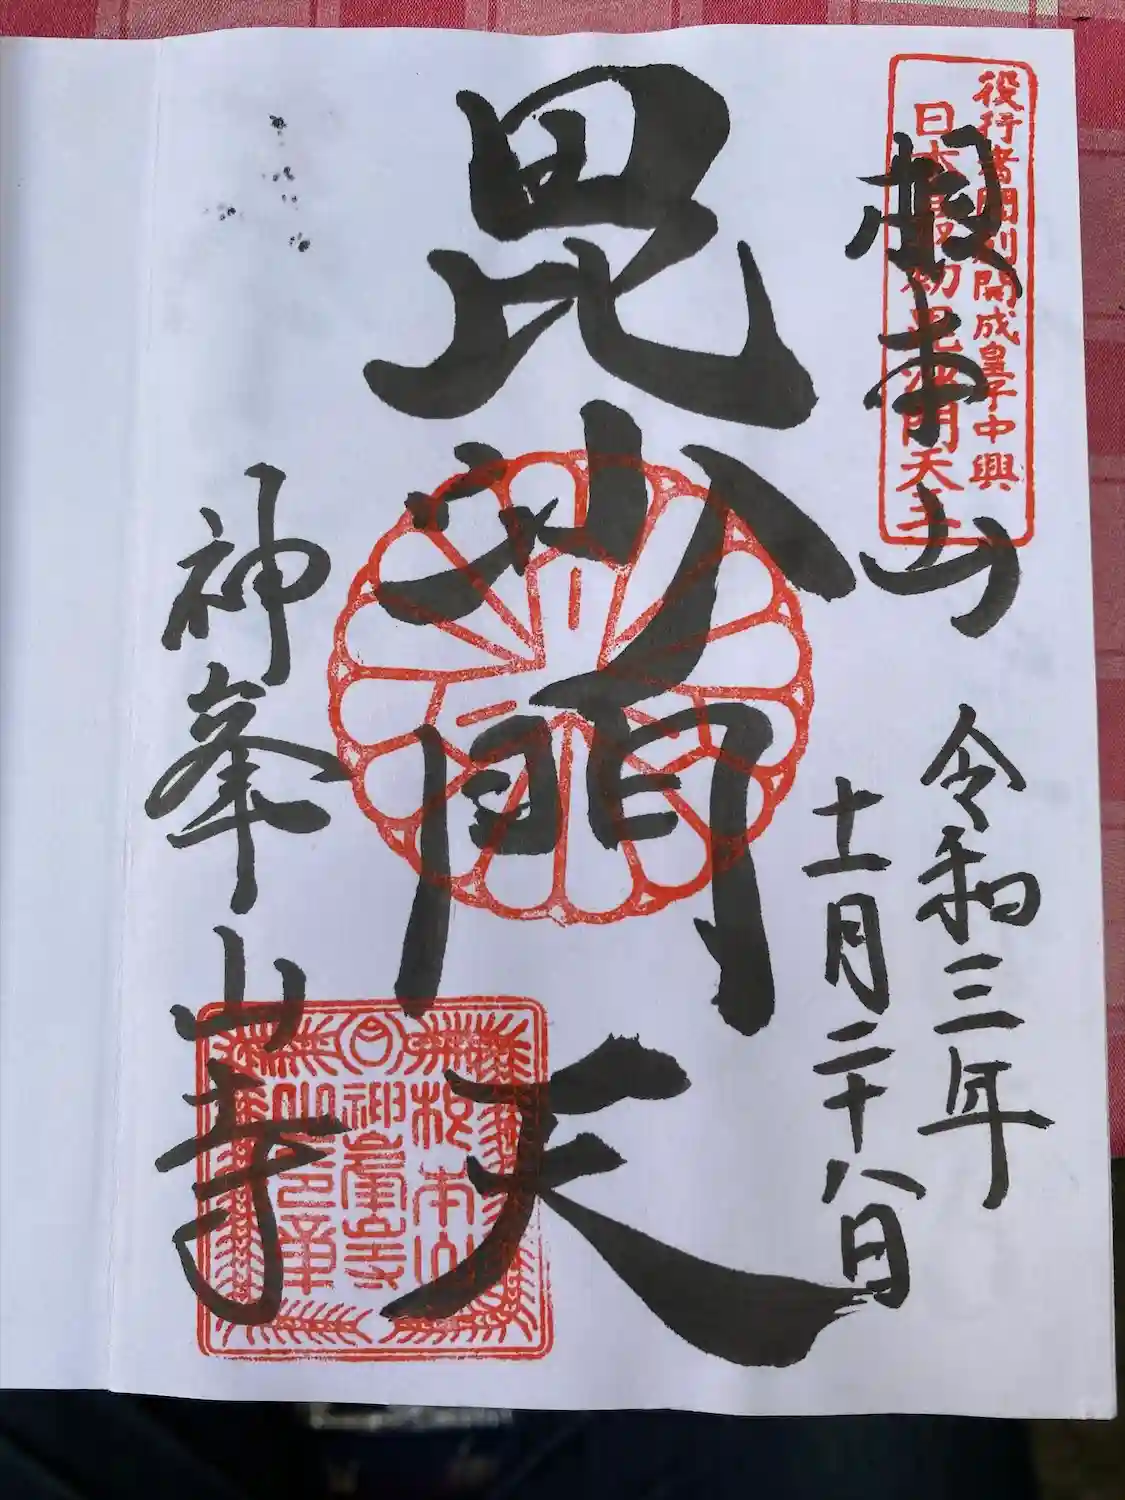 役行者開創開成皇子中興
日本最初毘沙門天王
根本山
令和三年
十一月二十八日
毘沙門天
神峯山寺
根本山
神峯山寺